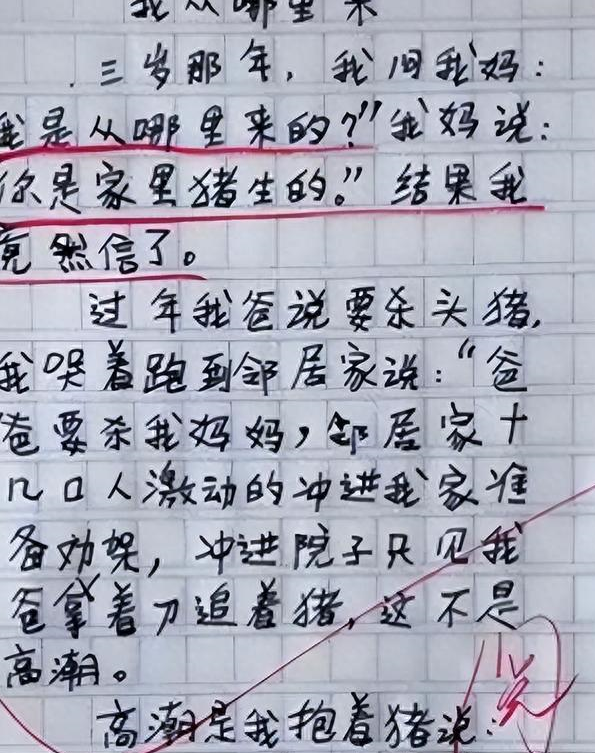 我从哪里来
三岁那年，我问我妈：
我是从哪里来的？”我妈说：
你是家里猪生的。”结果我
竟然信了。
过年我爸说要杀头猪，
我哭着跑到邻居家说：“爸
爸要杀我妈妈，邻居家十
几口人激动的冲进我家准
备劝架，冲进院子只见我
爸拿着刀追着猪，这不是
高潮。
高潮是我抱着猪说：